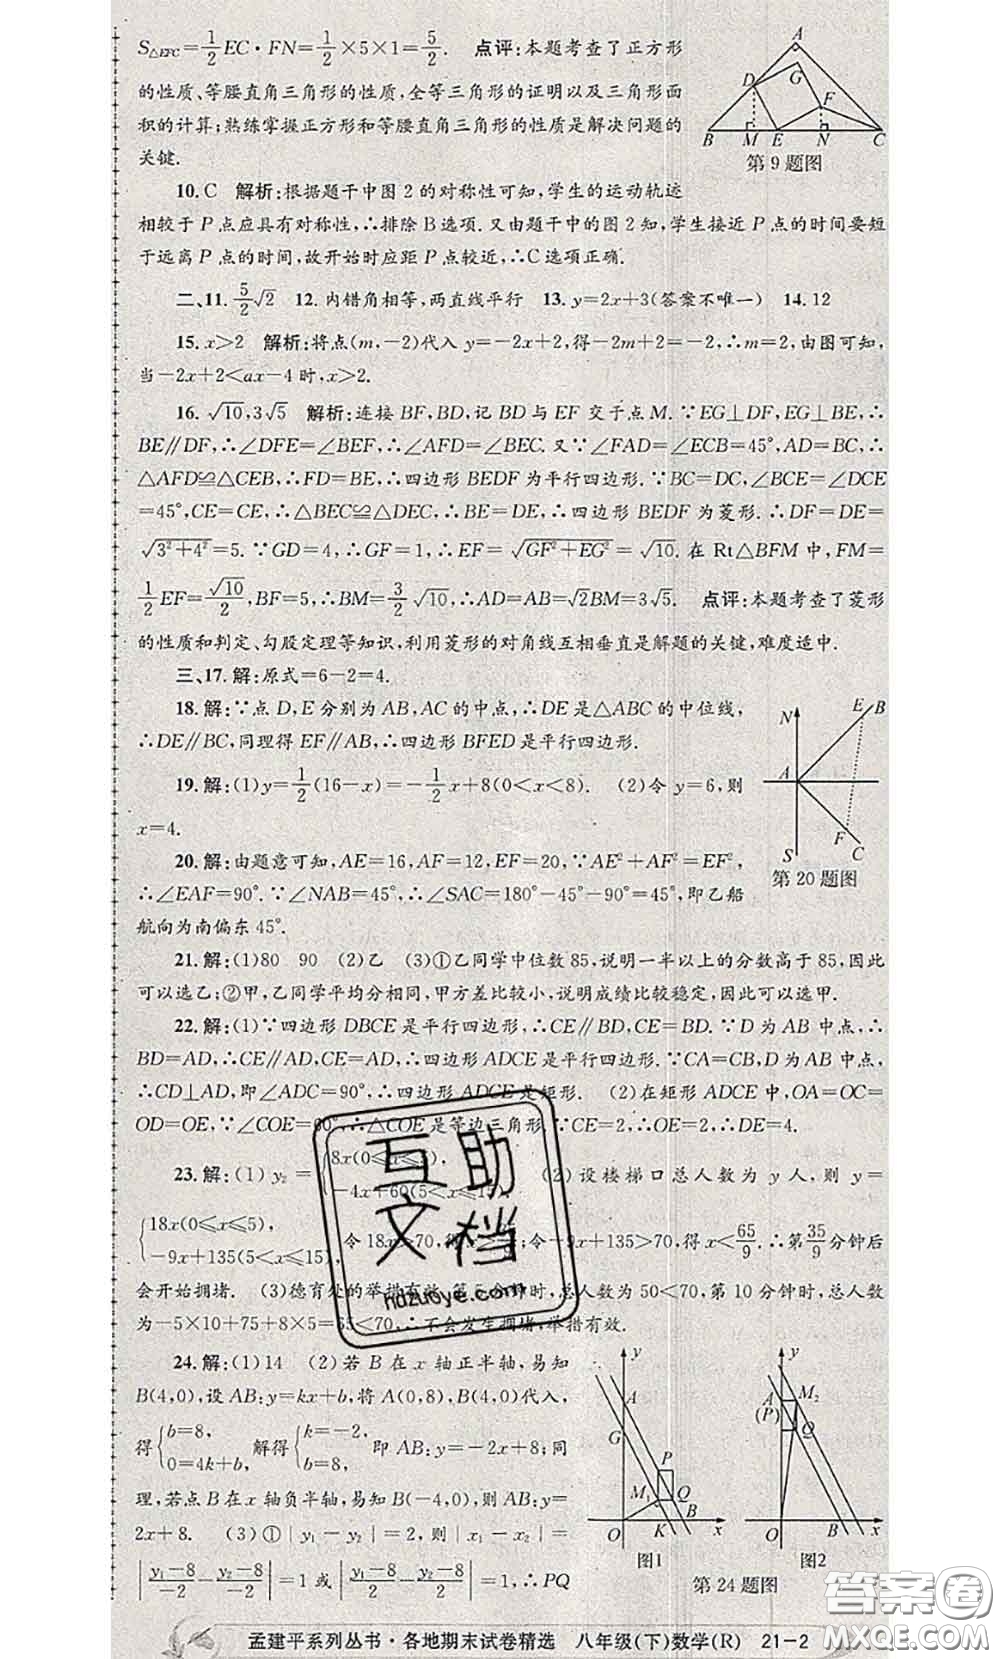 S△EFC=1/2EC·FN=1/2×5×1=5/2. 点评:本题考查了正方形
的性质、等腰直角三角形的性质,全等三角形的证明以及三角形面
积的计算;熟练掌握正方形和等腰直角三角形的性质是解决问题的
关键.
A
D
G
F
B M E N C
第9题图
10.C 解析:根据题干中图2的对称性可知,学生的运动轨迹
相较于P点应具有对称性,∴排除B选项.又由题干中的图2知,学生接近P点的时间要短
于远离P点的时间,故开始时应距P点较近,∴C选项正确.
二、11.5/2√2 12.内错角相等,两直线平行 13.y=2x+3(答案不唯一) 14.12
15.x>2 解析:将点(m,-2)代入y=-2x+2,得-2m+2=-2,∴m=2,由图可知,
当-2x+2<ax-4时,x>2.
16.√10,3√5 解析:连接BF,BD,记BD与EF交于点M.∵EG⊥DF,EG⊥BE,∴
BE∥DF,∴∠DFE=∠BEF,∴∠AFD=∠BEC.又∵∠FAD=∠ECB=45°,AD=BC,∴
△AFD≌△CEB,∴FD=BE,∴四边形BEDF为平行四边形.∵BC=DC,∠BCE=∠DCE
=45°,CE=CE,∴△BEC≌△DEC,∴BE=DE,∴四边形BEDF为菱形.∴DF=DE=
√3²+4²=5.∵GD=4,∴GF=1,∴EF=√GF²+EG²=√10.在Rt△BFM中,FM=
1/2EF=√10/2,BF=5,∴BM=3/2√10,∴AD=AB=√2BM=3√5. 点评:本题考查了菱形
的性质和判定、勾股定理等知识,利用菱形的对角线互相垂直是解题的关键,难度适中.
三、17.解:原式=6-2=4.
18.解:∵点D,E分别为AB,AC的中点,∴DE是△ABC的中位线,
∴DE∥BC,同理得EF∥AB,∴四边形BFED是平行四边形.
19.解:(1)y=1/2(16-x)=-1/2x+8(0<x<8). (2)令y=6,则
x=4.
20.解:由题意可知,AE=16,AF=12,EF=20,∵AE²+AF²=EF²,
∴∠EAF=90°.∵∠NAB=45°,∴∠SAC=180°-45°-90°=45°,即乙船
航向为南偏东45°.
N E B
A
F
S C
第20题图
21.解:(1)80 90 (2)乙 (3)①乙同学中位数85,说明一半以上的分数高于85,因此
可以选乙;②甲,乙同学平均分相同,甲方差比较小,说明成绩比较稳定,因此可以选甲.
22.解:(1)∵四边形DBCE是平行四边形,∴CE∥BD,CE=BD.∵D为AB中点,∴
BD=AD,∴CE∥AD,CE=AD,∴四边形ADCE是平行四边形.∵CA=CB,D为AB中点,
∴CD⊥AD,即∠ADC=90°,∴四边形ADCE是矩形. (2)在矩形ADCE中,OA=OC=
OD=OE,∵∠COE=60°,∴△COE是等边三角形.∵CE=2,∴OE=2,∴DE=4.
23.解:(1)y₂={8x(0≤x≤5), -4x+60(5<x≤15). (2)设楼梯口总人数为y人,则y=
{18x(0≤x≤5), -9x+135(5<x≤15), 令18x>70,得x>;令-9x+135>70,得x<65/9.∴第35/9分钟后
会开始拥堵. (3)德育处的举措有效.第5分钟时,总人数为50<70,第10分钟时,总人数
为-5×10+75+8×5=65<70,∴不会发生拥堵,举措有效.
24.解:(1)14 (2)若B在x轴正半轴,易知
B(4,0),设AB:y=kx+b,将A(0,8),B(4,0)代入,
得{b=8, 0=4k+b, 解得{k=-2, b=8, 即AB:y=-2x+8;同
理,若点B在x轴负半轴,易知B(-4,0),则AB:y=
2x+8. (3)①|y₁-y₂|=2,则|x₁-x₂|=
|y₁-8/-2-y₂-8/-2|=1或|y₁-8/2-y₂-8/2|=1,∴PQ
y
A
G
P
M₁ Q
B
O K x
图1
y
A M₂
(P)
Q
O B x
图2
第24题图
互助
文档
hdzuoye.com
孟建平系列丛书·各地期末试卷精选 八年级(下)数学(R) 21-2
答案圈
MXQE.COM